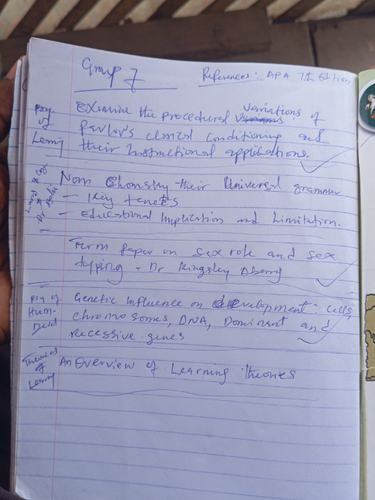 Group 7
References: APA 7th Edition
Psy of Learning
Examine the procedural variations of
Pavlov's classical conditioning and
their Instructional applications.
Noam Chomsky their Universal grammar
- Key tenets
- Educational Implication and Limitation.
Term Paper on Sex role and sex
typing - Dr Kingsley
Psy of Hum-
Genetic Influence on development: Cells,
chromosomes, DNA, Dominant and
recessive genes
Theories of Learning
An Overview of Learning Theories